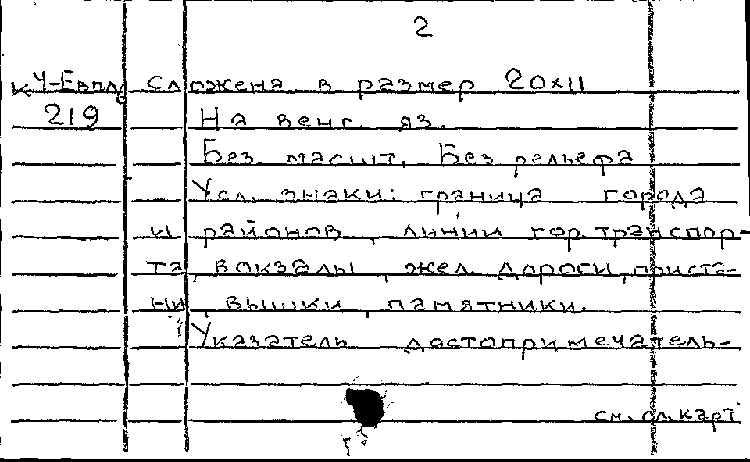 2
К 4-Евпд Сложена в размер 20х11
219 На венг. яз.
Без масшт. Без рельефа
Усл. знаки: граница города
и районов, линии гор. транспор-
та, вокзалы, жел. дороги, приста-
ни, вышки, памятники.
Указатель достопримечатель-
см. сл. карт